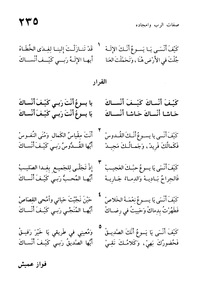 صفات الرب وأمجاده
٢٣٥
١
كَيْفَ أَنْسَى يَا يَسُوعُ أَنَّكَ الإِلَهْ قَدْ تَنَازَلْتَ إِلَينَا لِفِدَى الخُطَاةْ
جِئْتَ فِي الأَرْضِ هُنَا، وَتَحَمَّلْتَ العَنَا أَيُّهَا الإِلَهُ رَبِّي كَيْفَ أَنْسَاكْ
القرار
كَيْفَ أَنْسَاكَ كَيْفَ أَنْسَاكْ يَا يَسُوعُ أَنْتَ رَبِّي كَيْفَ أَنْسَاكْ
حَاشَا أَنْسَاكَ حَاشَا أَنْسَاكْ يَا يَسُوعُ أَنْتَ رَبِّي كَيْفَ أَنْسَاكْ
٢
كَيْفَ أَنْسَى يَا يَسُوعُ أَنَّكَ القُدُّوسْ أَنْتَ مِقْيَاسُ الكَمَالِ وَمُنَى النُّفُوسْ
فَكَمَالُكَ فَرِيدْ، وَجَمَالُكَ مَجِيدْ أَيُّهَا القُدُّوسُ رَبِّي كَيْفَ أَنْسَاكْ
٣
كَيْفَ أَنْسَى يَا يَسُوعُ حُبَّكَ العَجِيبْ إِذْ تَجَلَّى لِلْجَمِيعِ بِفِدَا الصَّلِيبْ
فَالجِرَاحُ بَادِيَة وَالدِّمَاءُ جَارِيَة أَيُّهَا المُحِبُّ رَبِّي كَيْفَ أَنْسَاكْ
٤
كَيْفَ أَنْسَى يَا يَسُوعُ نِعْمَةَ الخَلاصْ حِينَ نَجَّيْتَ حَيَاتِي وَأُمْحِيَ القِصَاصْ
فَطُهِّرْتُ بِدِمَاكَ وَحَيِيتُ فِي رِضَاكَ أَيُّهَا المُخَلِّصُ رَبِّي كَيْفَ أَنْسَاكْ
٥
كَيْفَ أَنْسَى يَا يَسُوعُ أَنَّكَ الصَّدِيقْ وَمُعِينِي فِي طَرِيقِي يَا خَيْرَ رَفِيقْ
فَحُضُورُكَ بَهِيّ، وَكَلامُكَ نَقِيّ أَيُّهَا الصَّدِيقُ رَبِّي كَيْفَ أَنْسَاكْ
فواز عميش